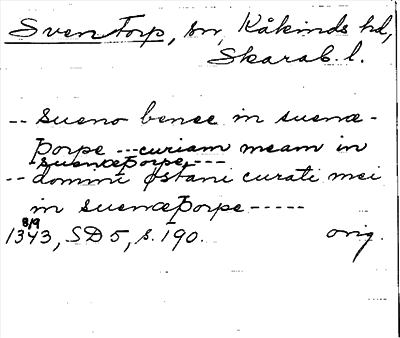 Sventorp, sn, Kåkinds hd,
Skarab. l.
-- sueno benee in suenæ-
þorpe --- curiam meam in
suenæþorpe ---
-- domini østani curati mei
in suenæþorpe -----
8/9
1343, SD 5, s. 190. orig.